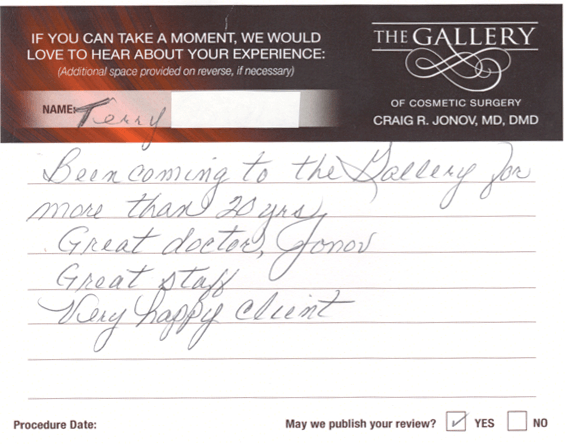 IF YOU CAN TAKE A MOMENT, WE WOULD
LOVE TO HEAR ABOUT YOUR EXPERIENCE:
(Additional space provided on reverse, if necessary)
NAME: Terry
THE GALLERY
OF COSMETIC SURGERY
CRAIG R. JONOV, MD, DMD
Been coming to the Gallery for
more than 20 yrs
Great doctor, Jonov
Great staff
Very happy client
Procedure Date:
May we publish your review? ✓ YES NO